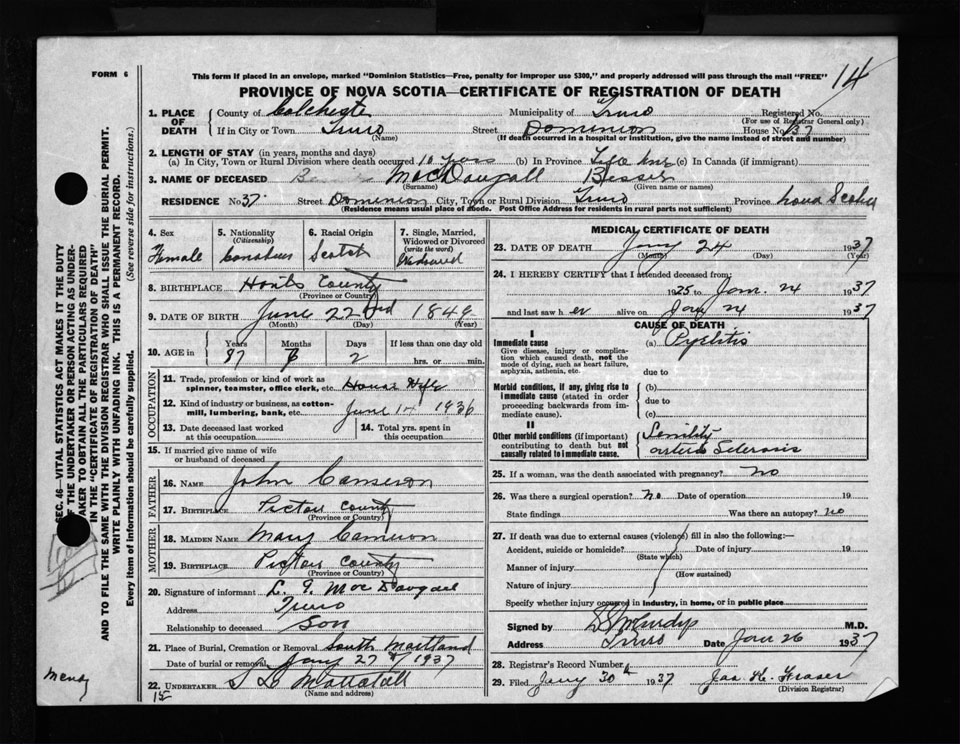 14
FORM 6
This form if placed in an envelope, marked "Dominion Statistics—Free, penalty for improper use $300," and properly addressed will pass through the mail "FREE"
PROVINCE OF NOVA SCOTIA—CERTIFICATE OF REGISTRATION OF DEATH
SEC. 46—VITAL STATISTICS ACT MAKES IT THE DUTY
OF THE UNDERTAKER OR PERSON ACTING AS UNDER-
TAKER TO OBTAIN ALL THE PARTICULARS REQUIRED
IN THE "CERTIFICATE OF REGISTRATION OF DEATH"
AND TO FILE THE SAME WITH THE DIVISION REGISTRAR WHO SHALL ISSUE THE BURIAL PERMIT.
WRITE PLAINLY WITH UNFADING INK. THIS IS A PERMANENT RECORD.
Every item of information should be carefully supplied. (See reverse side for instructions.)
1. PLACE OF DEATH County of Colchester Municipality of Truro Registered No.
(For use of Registrar General only)
If in City or Town Truro Street Dominion House No. 37
(Name) (If death occurred in a hospital or institution, give the name instead of street and number)
2. LENGTH OF STAY (in years, months and days)
(a) In City, Town or Rural Division where death occurred 10 years (b) In Province Life time (c) In Canada (if immigrant)
3. NAME OF DECEASED MacDougall Besser
(Surname) (Given name or names)
RESIDENCE No. 37 Street Dominion City, Town or Rural Division Truro Province Nova Scotia
(Residence means usual place of abode. Post Office Address for residents in rural parts not sufficient)
4. Sex Female
5. Nationality (Citizenship)
6. Racial Origin Scotch
7. Single, Married, Widowed or Divorced (write the word) Widowed
8. BIRTHPLACE Hants County
(Province or Country)
9. DATE OF BIRTH June 22nd 1849
(Month) (Day) (Year)
10. AGE in Years Months Days If less than one day old
87 2 hrs. or min.
OCCUPATION
11. Trade, profession or kind of work as spinner, teamster, office clerk, etc. House Wife
12. Kind of industry or business, as cotton-mill, lumbering, bank, etc. June 14 1936
13. Date deceased last worked at this occupation
14. Total yrs. spent in this occupation
15. If married give name of wife or husband of deceased
FATHER
16. NAME John Cameron
17. BIRTHPLACE Pictou County
(Province or Country)
MOTHER
18. MAIDEN NAME Mary Cameron
19. BIRTHPLACE Pictou County
(Province or Country)
20. Signature of informant L. G. MacDougall
Address Truro
Relationship to deceased Son
21. Place of Burial, Cremation or Removal South Maitland
Date of burial or removal Jany 27 1937
22. UNDERTAKER Mattatall
(Name and address)
15
MEDICAL CERTIFICATE OF DEATH
23. DATE OF DEATH Jany 24 1937
(Month) (Day) (Year)
24. I HEREBY CERTIFY that I attended deceased from:
1925 to Jan. 24 1937
and last saw h er alive on Jany 24 1937
CAUSE OF DEATH
I
Immediate cause
Give disease, injury or complication which caused death, not the mode of dying, such as heart failure, asphyxia, asthenia, etc.
(a) Pyelitis
due to
Morbid conditions, if any, giving rise to immediate cause (stated in order proceeding backwards from immediate cause).
(b)
due to
(c)
II
Other morbid conditions (if important) contributing to death but not causally related to immediate cause.
Senility
arterio Sclerosis
25. If a woman, was the death associated with pregnancy? no
26. Was there a surgical operation? No Date of operation 19
State findings Was there an autopsy? no
27. If death was due to external causes (violence) fill in also the following:—
Accident, suicide or homicide? Date of injury 19
(State which)
Manner of injury
(How sustained)
Nature of injury
Specify whether injury occurred in industry, in home, or in public place
Signed by M.D.
Address Truro Date Jan 26 1937
28. Registrar's Record Number
29. Filed Jany 30th 1937 Jas. K. Fraser
(Division Registrar)